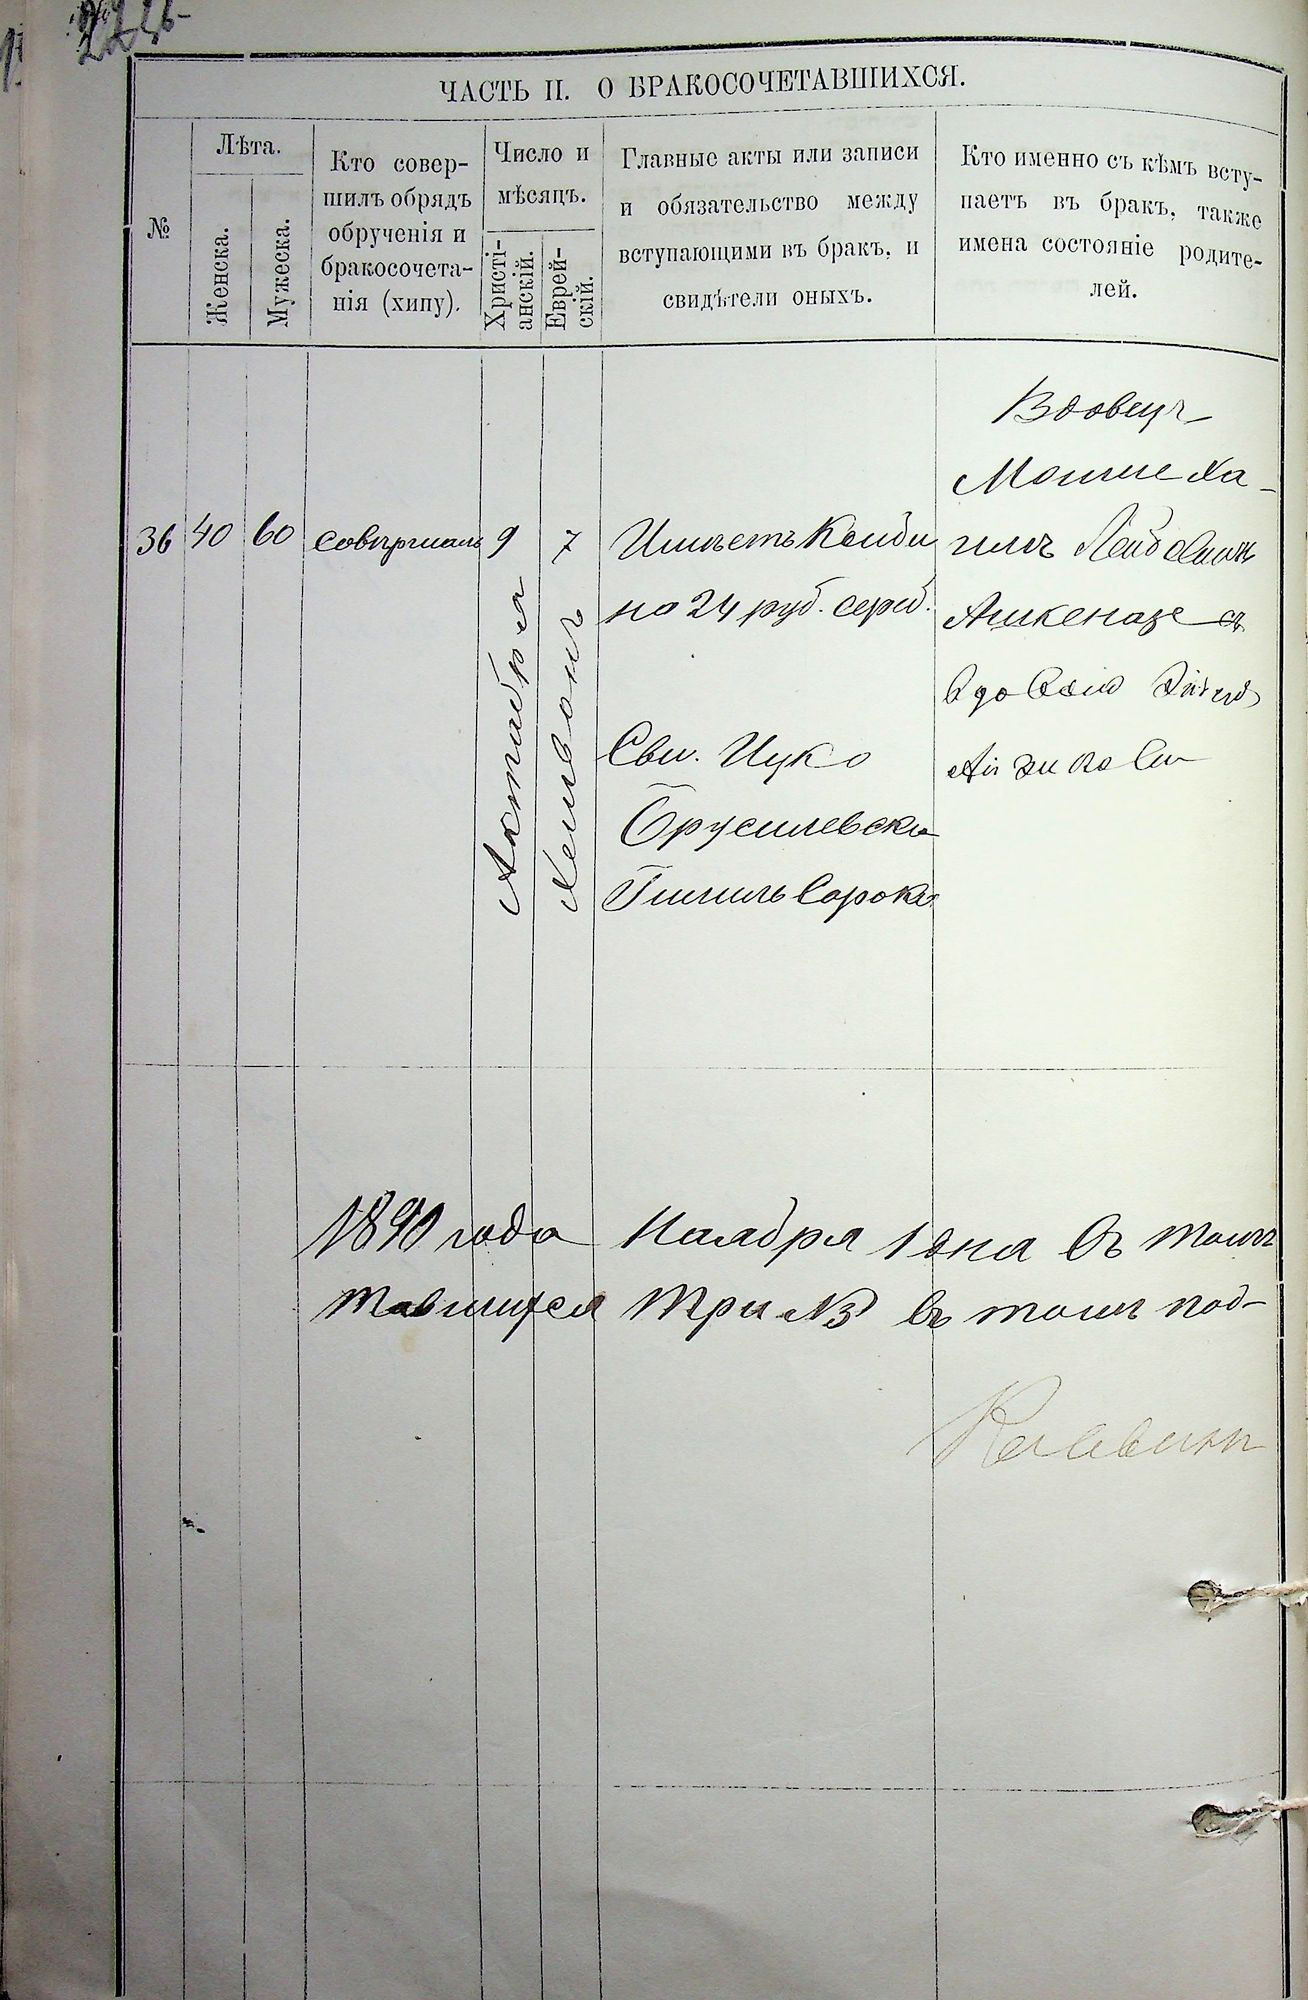 ЧАСТЬ II. О БРАКОСОЧЕТАВШИХСЯ.
№
Лѣта.
Женска.
Мужеска.
Кто совер-
шилъ обрядъ
обрученія и
бракосочета-
нія (хипу).
Число и
мѣсяцъ.
Христі-
анскій.
Еврей-
скій.
Главные акты или записи
и обязательство между
вступающими въ бракъ, и
свидѣтели оныхъ.
Кто именно съ кѣмъ всту-
паетъ въ бракъ, также
имена состояніе родите-
лей.
36
40
60
9
Актабря
7
Хешвонъ
на 24 руб. сереб.
Сви. Ицко
Брусилевски
Сорока
Вдовецъ
Мошие Ха-
имъ
Ашкеназе съ
вдовою
1890 года Наября 1 дня въ томъ
тавшихся три №3 въ томъ под-